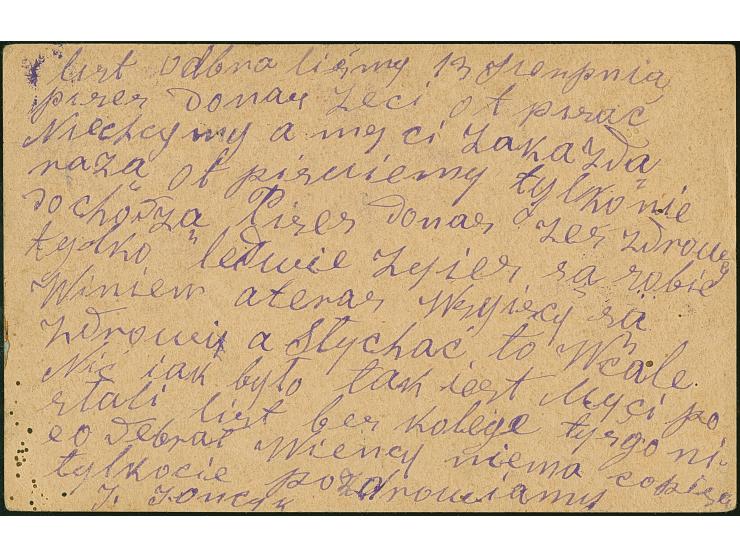 list odbra liśmy 13 sierpnia
pises donas żeci ot pisać
Niechcymy a my ci zakażda
raza ot pisuiemy tylko nie
dochodza Pises donas żeś zdrowy
tydko ledwie żyies sa robie
Winiem ateras Wszyiscy sa
zdrowi a słychać to Wcale
Nic iak było tak iest Myci po
słali list bes kolege tyśgo ni
eo debrał Wiency niema co pisać
tylkocie pozdrowiamy
J. Jonczyk